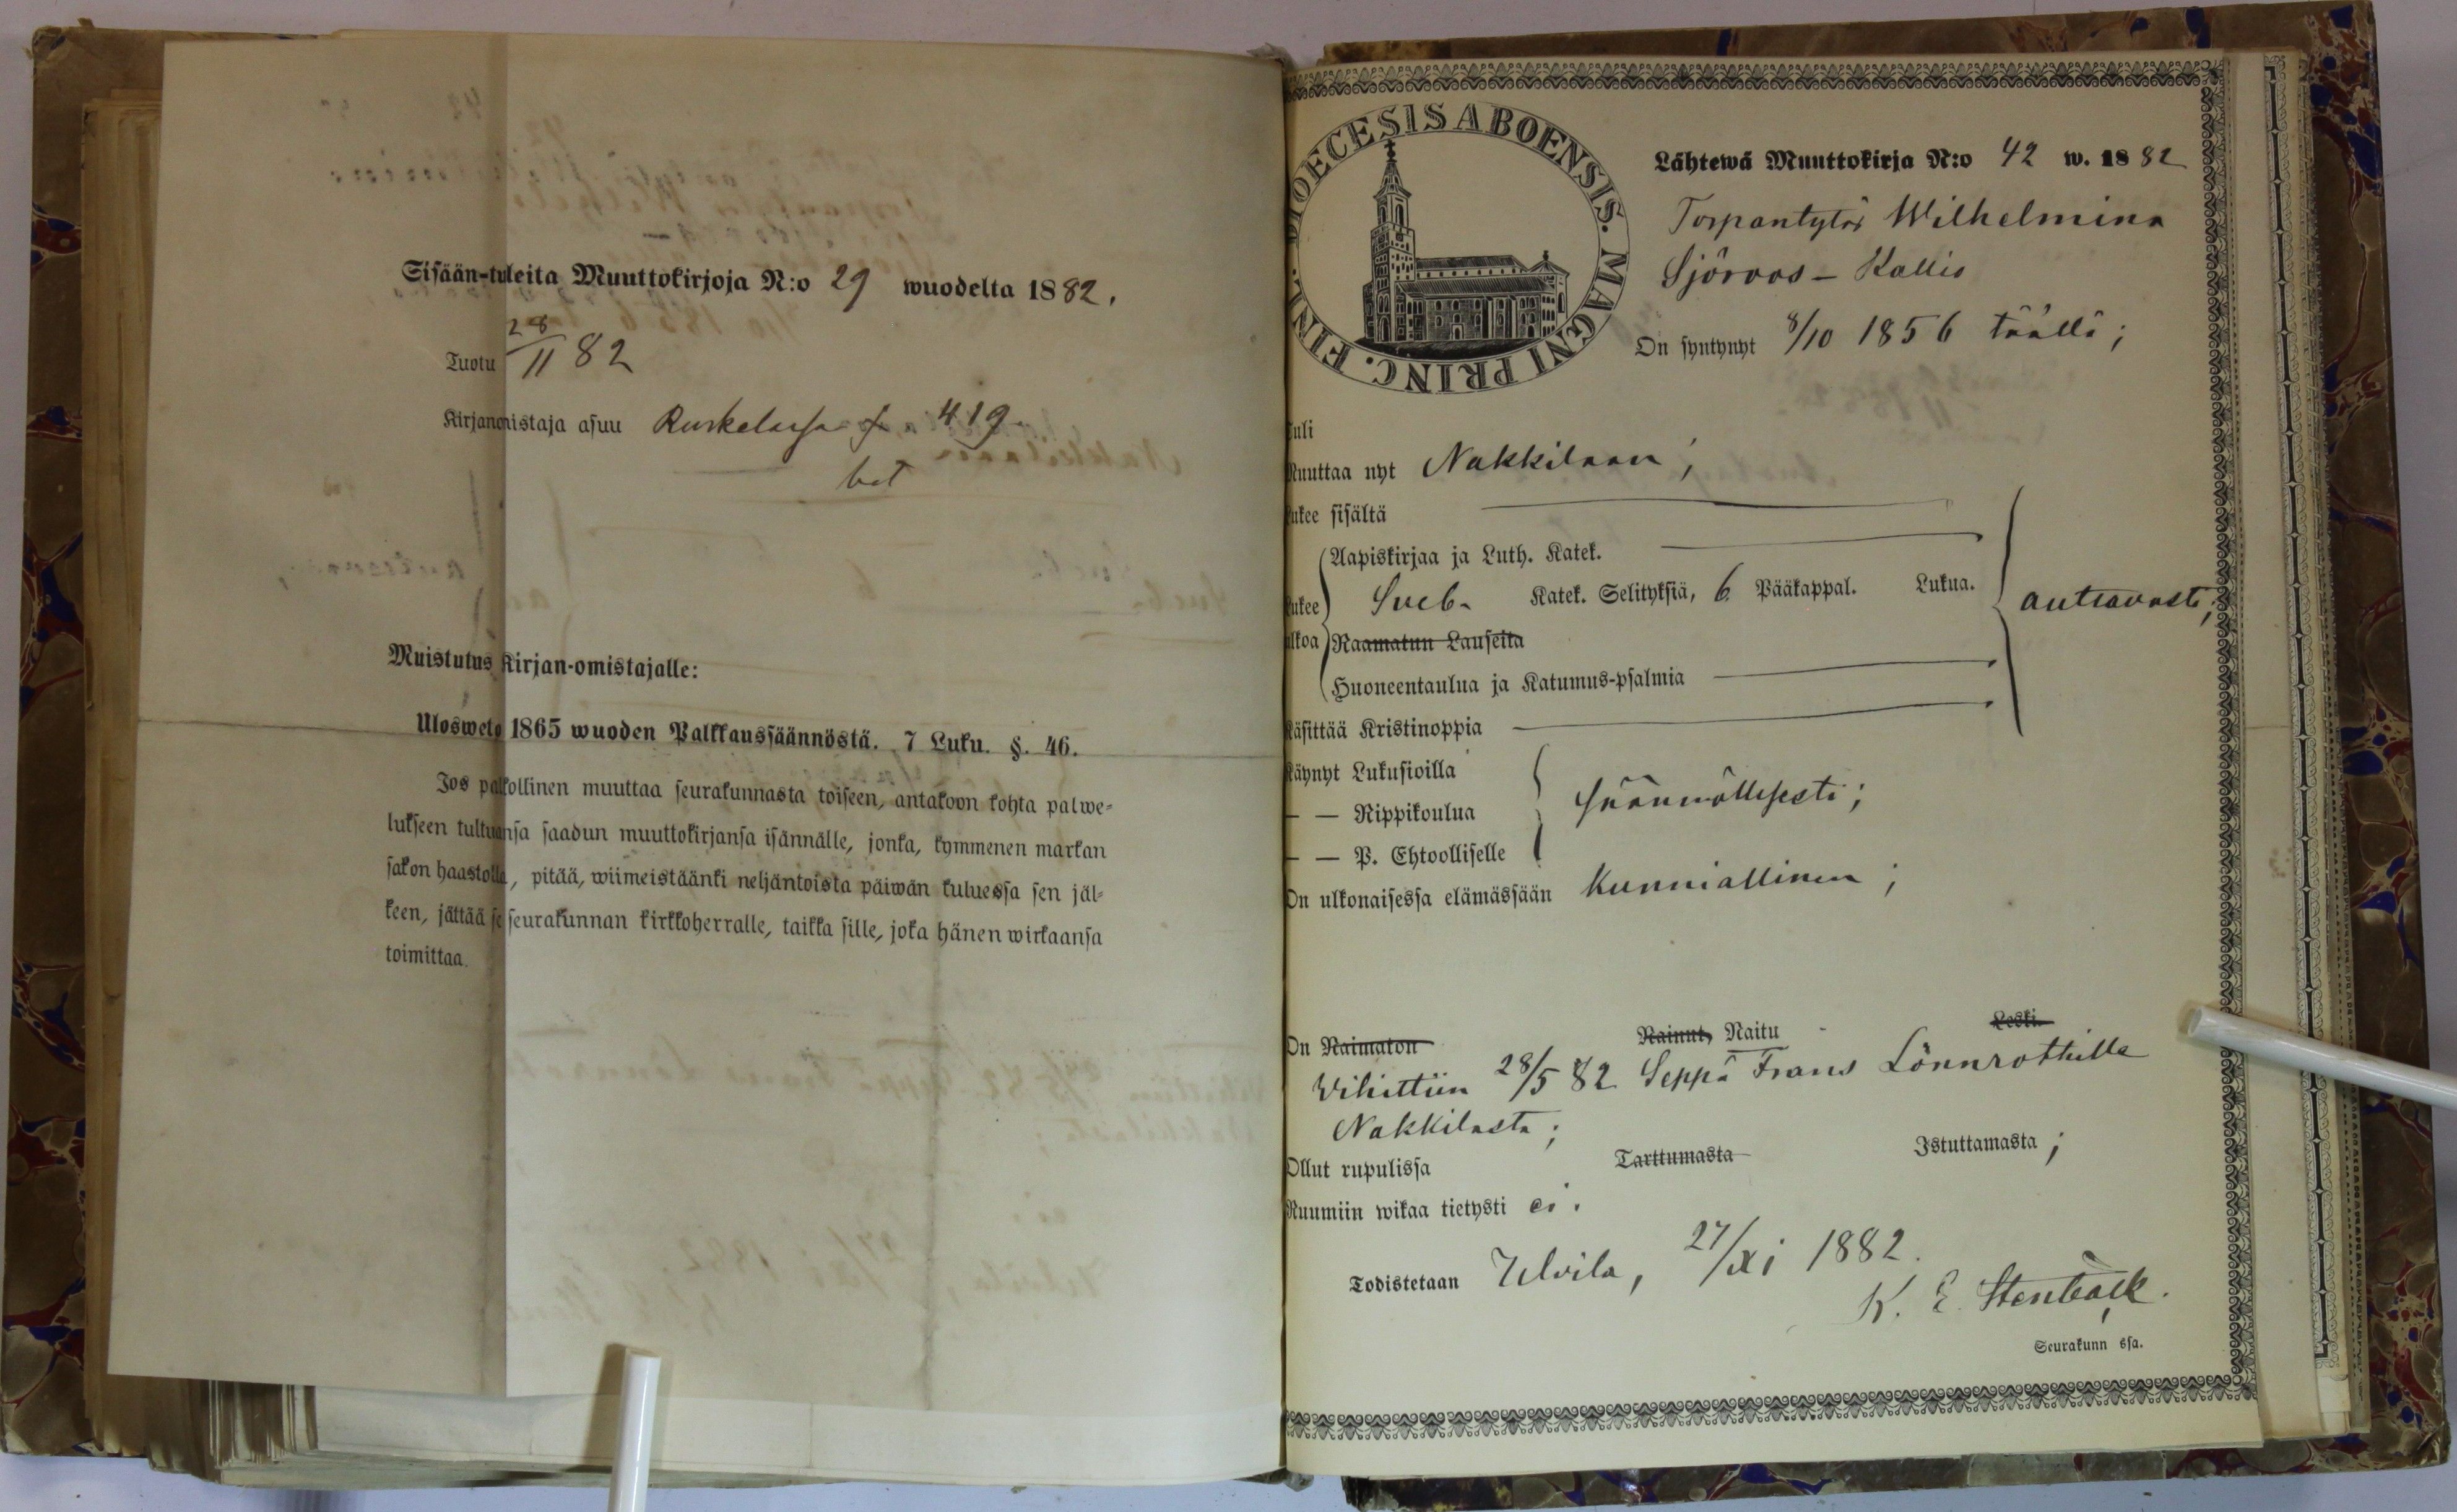 Sisään-tuleita Muuttokirjoja N:o 29 wuodelta 1882.
Tuotu 28/11 82
Kirjanomistaja asuu Ruskelassa 419
bet
Muistutus Kirjan-omistajalle:
Ulosweto 1865 wuoden Palkkaussäännöstä. 7 Luku. §. 46.
Jos palkollinen muuttaa seurakunnasta toiseen, antakoon kohta palwe-
lukseen tultuansa saadun muuttokirjansa isännälle, jonka, kymmenen markan
sakon haastolla, pitää, wiimeistäänki neljäntoista päiwän kuluessa sen jäl-
keen, jättää se seurakunnan kirkkoherralle, taikka sille, joka hänen wirkaansa
toimittaa.
DIOECESIS ABOENSIS. MAGNI PRINC. FINL.
Lähtewä Muuttokirja N:o 42 w. 1882
Torpantytär Wilhelmina
Sjöroos - Kallio
On syntynyt 8/10 1856 täällä;
Tuli
Muuttaa nyt Nakkilaan;
Lukee sisältä
Aapiskirjaa ja Luth. Katek.
Lukee Sveb. Katek. Selityksiä, 6 Pääkappal. Lukua. auttavasti;
ulkoa Raamatun Lauseita
Huoneentaulua ja Katumus-psalmia
Käsittää Kristinoppia
Käynyt Lukusioilla
— — Rippikoulua säännöllisesti;
— — P. Ehtoolliselle
On ulkonaisessa elämässään kunniallinen;
On Naimaton Nainut, Naitu Leski.
Vihittiin 28/5 82 Seppä Frans Lönnrothille
Nakkilasta;
Ollut rupulissa Tarttumasta Istuttamasta;
Ruumiin wikaa tietysti ei.
Todistetaan Ulvila, 27/XI 1882.
K. E. Stenbäck.
Seurakunn ssa.